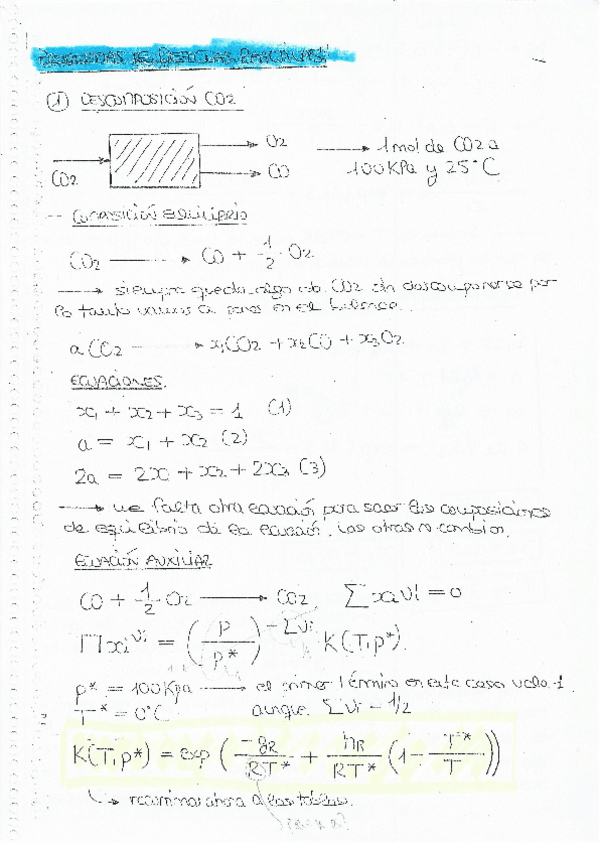 ① DESCOMPOSICIÓN CO2
O2
CO2
CO
→ 1 mol de CO2 a
100KPa y 25°C
COMPOSICIÓN EQUILIBRIO
CO2 → CO + 1/2 O2
→ siempre queda algo de CO2 sin descomponerse por
lo tanto vamos a en el balance.
a CO2 → x1CO2 + x2CO + x3O2
ECUACIONES
x1 + x2 + x3 = 1 (1)
a = x1 + x2 (2)
2a = 2x1 + x2 + 2x3 (3)
→ me falta otra ecuación para sacar las composiciones
de equilibrio de la ecuación. Las otras no cambian.
ECUACIÓN AUXILIAR
CO + 1/2 O2 → CO2
Πxi^νi = (P/P*)^-Σνi K(T,p*)
P* = 100KPa → el primer término en este caso vale 1
T* = 0°C aunque Σνi = 1/2
K(T,p*) = exp(-gR/RT* + hR/RT* (1 - T*/T))
↳ recurrimos ahora a las tablas.